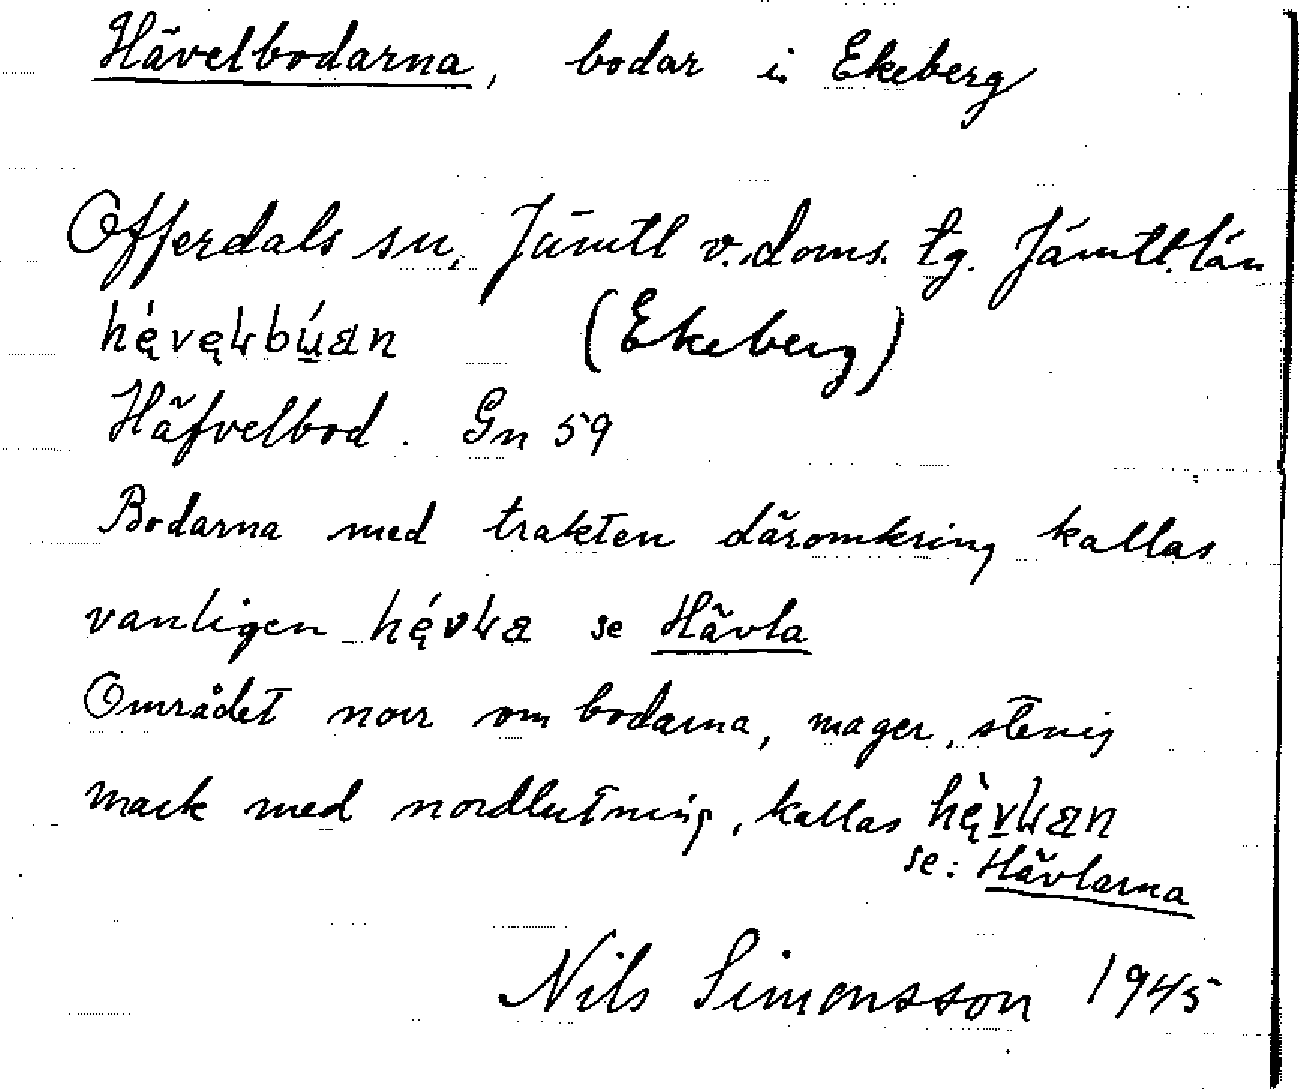 Hävelbodarna, bodar i Ekeberg
Offerdals sn, Jämtl v. doms. tg. Jämtl. län
hę́vęɫbúan (Ekeberg)
Häfvelbod. Gn 59
Bodarna med trakten däromkring kallas
vanligen hę́vɫa se Hävla
Området norr om bodarna, mager, stenig
mark med nordlutning, kallas hę̀vɫan
se: Hävlarna
Nils Simonsson 1945